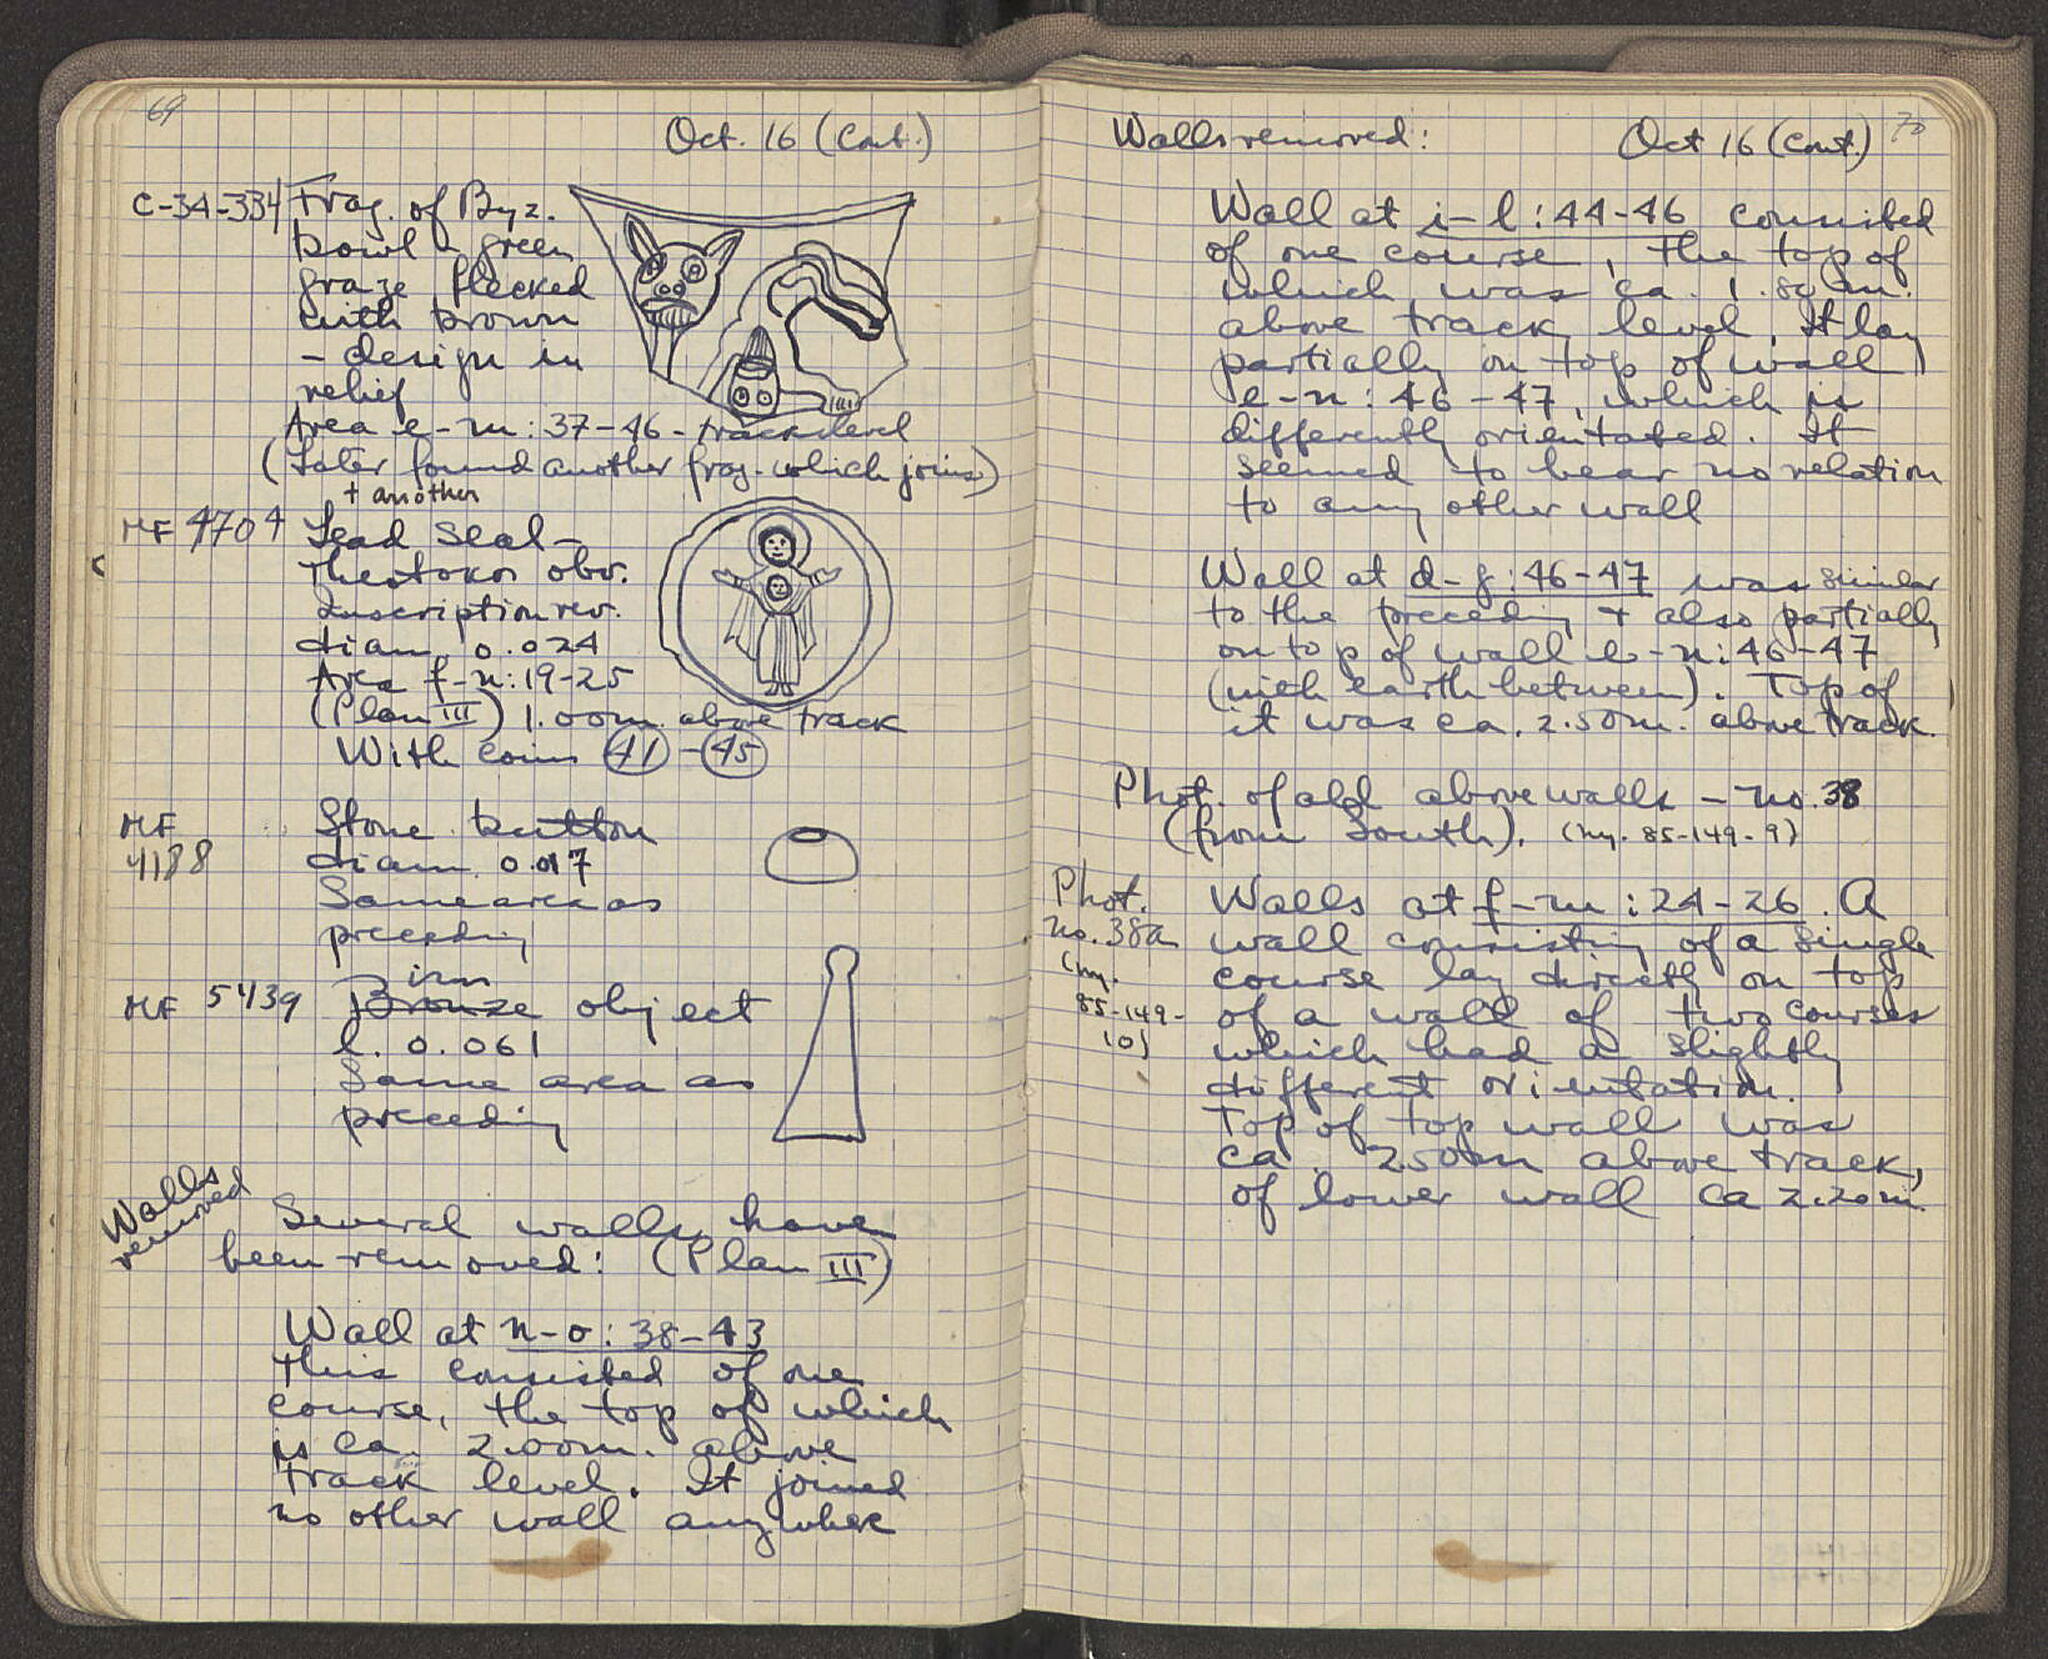 69
Oct. 16 (Cont.)
C-34-334 Frag. of Byz.
bowl - green
graze flecked
with brown
- design in
relief
Area e-m: 37-46 - track level
(Later found another frag. which joins)
+ another
MF 4704 Lead Seal -
Theotokos obv.
Inscription rev.
diam. 0.024
Area f-n: 19-25
(Plan III) 1.00m. above track
With coins 41 - 45
MF 4188 Stone button
diam. 0.017
Same area as
preceding
iron
MF 5439 Bronze object
l. 0.061
Same area as
preceding
Walls removed
Several walls have
been removed: (Plan III)
Wall at n-o: 38-43
This consisted of one
course, the top of which
is ca. 2.00m. above
track level. It joined
no other wall anywhere
70
Walls removed: Oct 16 (Cont.)
Wall at i-l: 44-46 consisted
of one course, the top of
which was ca. 1.80m.
above track level. It lay
partially on top of wall
e-n: 46-47, which is
differently orientated. It
seemed to bear no relation
to any other wall
Wall at d-g: 46-47 was similar
to the preceding + also partially
on top of wall e-n: 46-47
(with earth between). Top of
it was ca. 2.50m. above track.
Phot. of all above walls - no. 38
(from South). (ny. 85-149-9)
Phot. no. 38a (ny. 85-149-10)
Walls at f-m: 24-26. A
wall consisting of a single
course lay directly on top
of a wall of two courses
which had a slightly
different orientation.
Top of top wall was
ca. 2.50m above track,
of lower wall ca 2.20m.